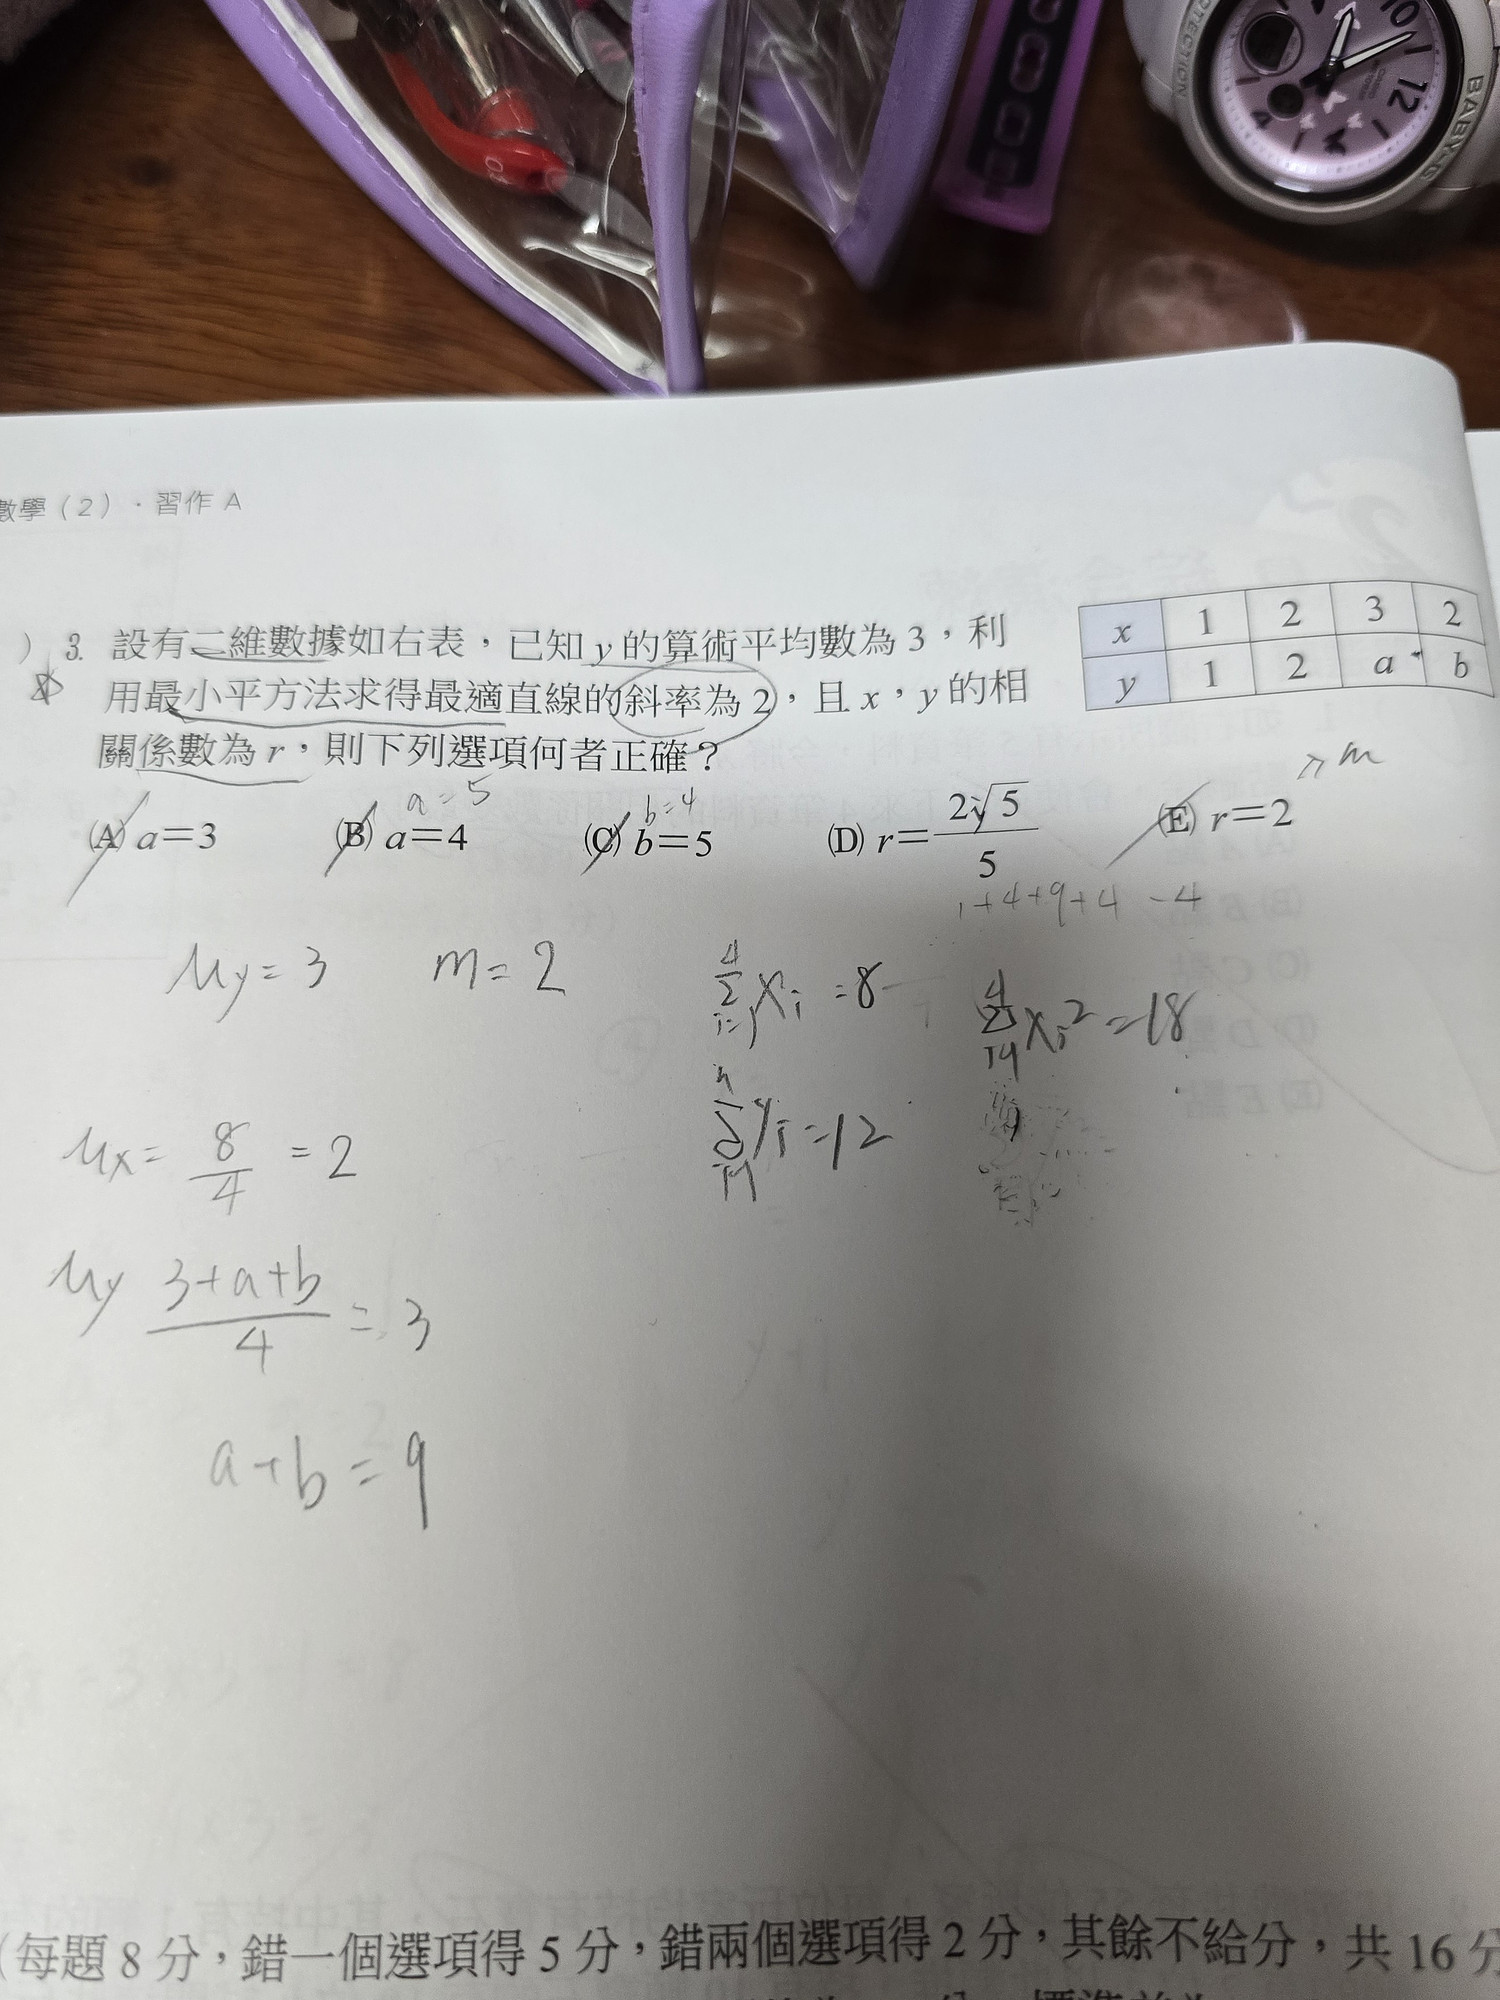 10
12
4
PROTECTION
BABY-G
CASIO
數學(2)．習作 A
) 3. 設有二維數據如右表，已知 y 的算術平均數為 3，利
用最小平方法求得最適直線的斜率為 2，且 x，y 的相
關係數為 r，則下列選項何者正確？
x 1 2 3 2
y 1 2 a b
a=5
b=4
m
(A) a＝3 (B) a＝4 (C) b＝5 (D) r＝2√5/5 (E) r＝2
1+4+9+4 -4
μy=3 m=2
4Σi=1 xi =8
4Σi=1 xi²=18
μx= 8/4 =2
4Σi=1 yi=12
μy 3+a+b/4 = 3
a+b=9
(每題 8 分，錯一個選項得 5 分，錯兩個選項得 2 分，其餘不給分，共 16 分